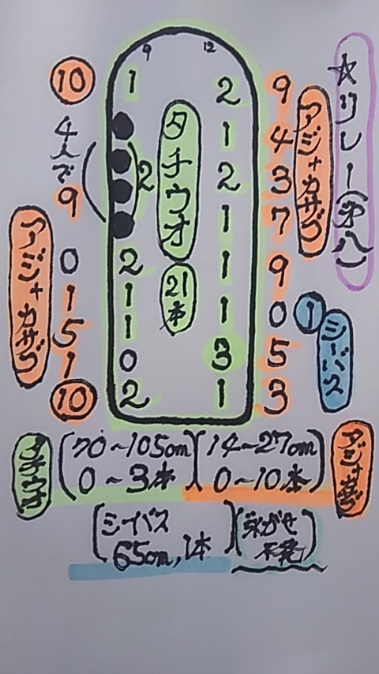 ☆リレー(第八)
9 12
10 1 2 9
1 4
4人で9 2 2 3
1 7
0 2 1 9
1 1 1 0
5 1 3 5
1 0
10 2 1 3
タチウオ
21本
アジ+カサゴ
アジ+カサゴ
① シーバス
タチウオ (70~105cm 0~3本)
(14~27cm 0~10本) アジ+カサゴ
(シーバス 65cm, 1本)
(泳がせ 不発)